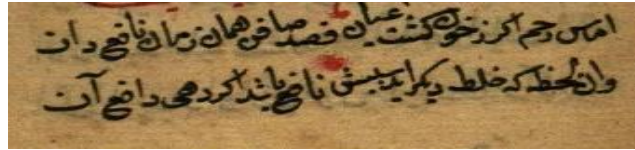 اماس رحم اکر ز خون کشت عیان فصد صافن همان زمان نافع دان
وان لحظه که خلط دیکر اید سببش نافع باشد اکر دهی دافع آن